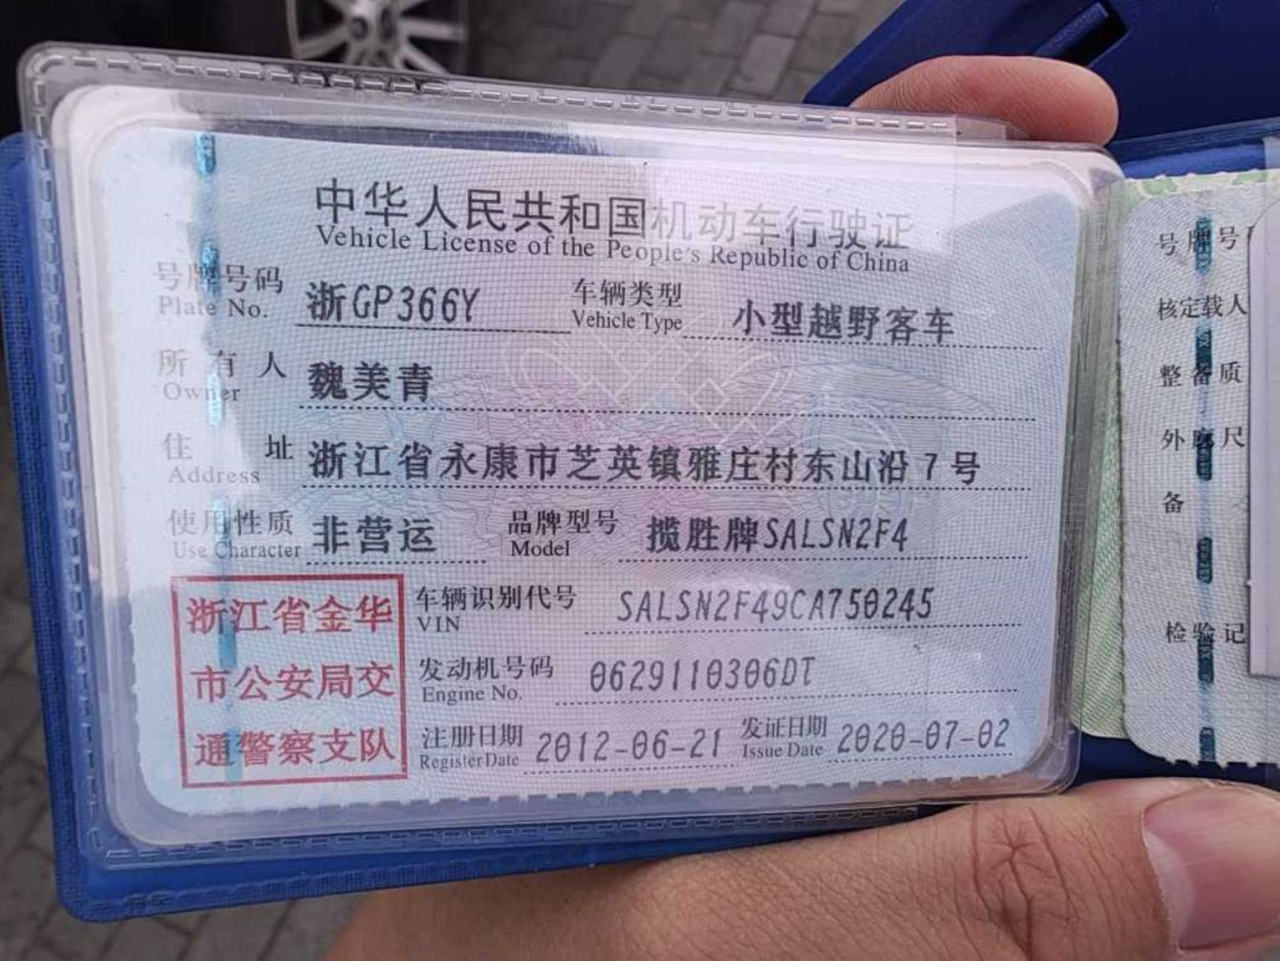 中华人民共和国机动车行驶证
Vehicle License of the People's Republic of China
号牌号码 浙GP366Y 车辆类型 小型越野客车
Plate No. Vehicle Type
所有人 魏美青
Owner
住址 浙江省永康市芝英镇雅庄村东山沿7号
Address
使用性质 非营运 品牌型号 揽胜牌SALSN2F4
Use Character Model
浙江省金华
市公安局交
通警察支队
车辆识别代号 SALSN2F49CA750245
VIN
发动机号码 0629110306DT
Engine No.
注册日期 2012-06-21 发证日期 2020-07-02
Register Date Issue Date
号牌号
核定载人
整备质
外廓尺
备
检验记